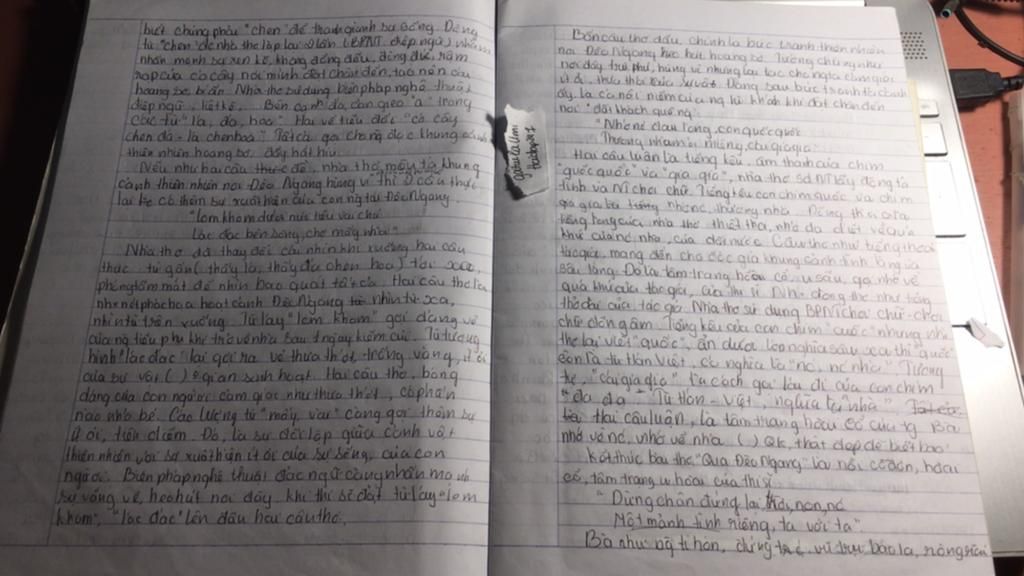 biết chúng phải "chen" để tranh giành sự sống. Động
từ "chen" đc nhà thơ lặp lại 2 lần (BPNT điệp ngữ)
nhấn mạnh sự xen kẽ, không đồng đều, đông đúc, rậm
rạp của cỏ cây nơi mình đặt chân đến, tạo nên cái
hoang sơ, bí ẩn. Nhà thơ sử dụng biện pháp nghệ thuật
điệp ngữ, liệt kê. Bên cạnh đó, còn gieo "a" trong
các từ "lá, đá, hoa". Hai vế tiểu đối "cỏ cây
chen đá - lá chen hoa". Tất cả gợi cho ng đọc 1 khung cảnh
thiên nhiên hoang sơ, đầy hắt hiu.
Nếu như hai câu thơ đề, nhà thơ miêu tả khung
cảnh thiên nhiên nơi Đèo Ngang hùng vĩ thì ở câu thực
lại có thêm sự xuất hiện của con ng tại Đèo Ngang.
"Lom khom dưới núi, tiều vài chú
Lác đác bên sông, chợ mấy nhà"
Nhà thơ đã thay đổi cái nhìn khi xuống hai câu
thực từ gần (thấy lá, thấy đá chen hoa) tới xa,
phóng tầm mắt để nhìn bao quát tất cả. Hai câu thơ là
như nét phác hoạ hoạt cảnh Đèo Ngang nhìn từ xa,
nhìn từ trên xuống. Từ láy "lom khom" gợi dáng vẻ
của ng tiều phu khi trở về nhà sau 1 ngày kiếm củi. Từ tượng
hình "lác đác" lại gợi ra vẻ thưa thớt, trống vắng, ít ỏi
của sự vật ( ) gian sinh hoạt. Hai câu thơ, bóng
dáng của con người cảm giác như thưa thớt, có phần
nào nhỏ bé. Các lượng từ "mấy, vài" càng gợi thêm sự
ít ỏi, tiêu điều. Đó, là sự đối lập giữa cảnh vật
thiên nhiên với sự xuất hiện ít ỏi của sự sống, của con
người. Biện pháp nghệ thuật đảo ngữ càng nhấn mạnh
sự vắng vẻ, heo hút nơi đây khi thi sĩ đặt từ láy "lom
khom", "lác đác" lên đầu hai câu thơ.
Bốn câu thơ đầu, chính là bức tranh thiên nhiên
nơi Đèo Ngang heo hút hoang sơ. Tưởng chừng như
nơi đây trù phú, hùng vĩ nhưng lại tạo cho ng ta cảm giác
ít ỏi, thưa thớt sức sống. Đằng sau bức tranh tả cảnh
ấy, là cả nỗi niềm của ng lữ khách khi đặt chân đến
nơi "đất khách quê ng".
"Nhớ nc đau lòng, con quốc quốc
Thương nhà mỏi miệng, cái gia gia"
Hai câu luận là tiếng kêu, âm thanh của chim
"quốc quốc" và "gia gia", nhà thơ sd NT lấy động tả
tĩnh và NT chơi chữ. Tiếng kêu con chim quốc và chim
gia gia là tiếng nhớ nc, thương nhà. Đồng thời cx là
tiếng lòng của nhà thơ thiết tha, nhớ da diết về quá
khứ của nc nhà, của đất nước. Câu thơ như tiếng thở dài
của tác giả, mang đến cho độc giả khung cảnh tĩnh lặng và
sâu lắng. Đó là tâm trạng hoài cổ, u sầu, gợi nhớ về
quá khứ của tác giả, của thi sĩ. Nhịp đọc thơ như tiếng
thở dài của tác giả. Nhà thơ sử dụng BPNT chơi chữ - chơi
chữ đồng âm. Tiếng kêu của con chim "cuốc" nhưng nhà
thơ lại viết "quốc", ẩn dưới lớp nghĩa sâu xa thì "quốc"
còn là từ Hán Việt, có nghĩa là "nc, nc nhà". Tương
tự, "cái gia gia" là cách gọi láy đi của con chim
"đa đa" - Từ Hán - Việt, nghĩa là "nhà".
hai câu luận, là tâm trạng hoài cổ của tg. Bà
nhớ về nc, nhớ về nhà ( ) QK, thật đẹp đẽ biết bao!
Kết thúc bài thơ "Qua Đèo Ngang" là nỗi cô đơn, hoài
cổ, tâm trạng u hoài của thi sĩ.
"Dừng chân đứng lại, trời, non, nc
Một mảnh tình riêng, ta với ta"
Bà như ng tí hon, đứng vũ trụ bao la, rộng lớn